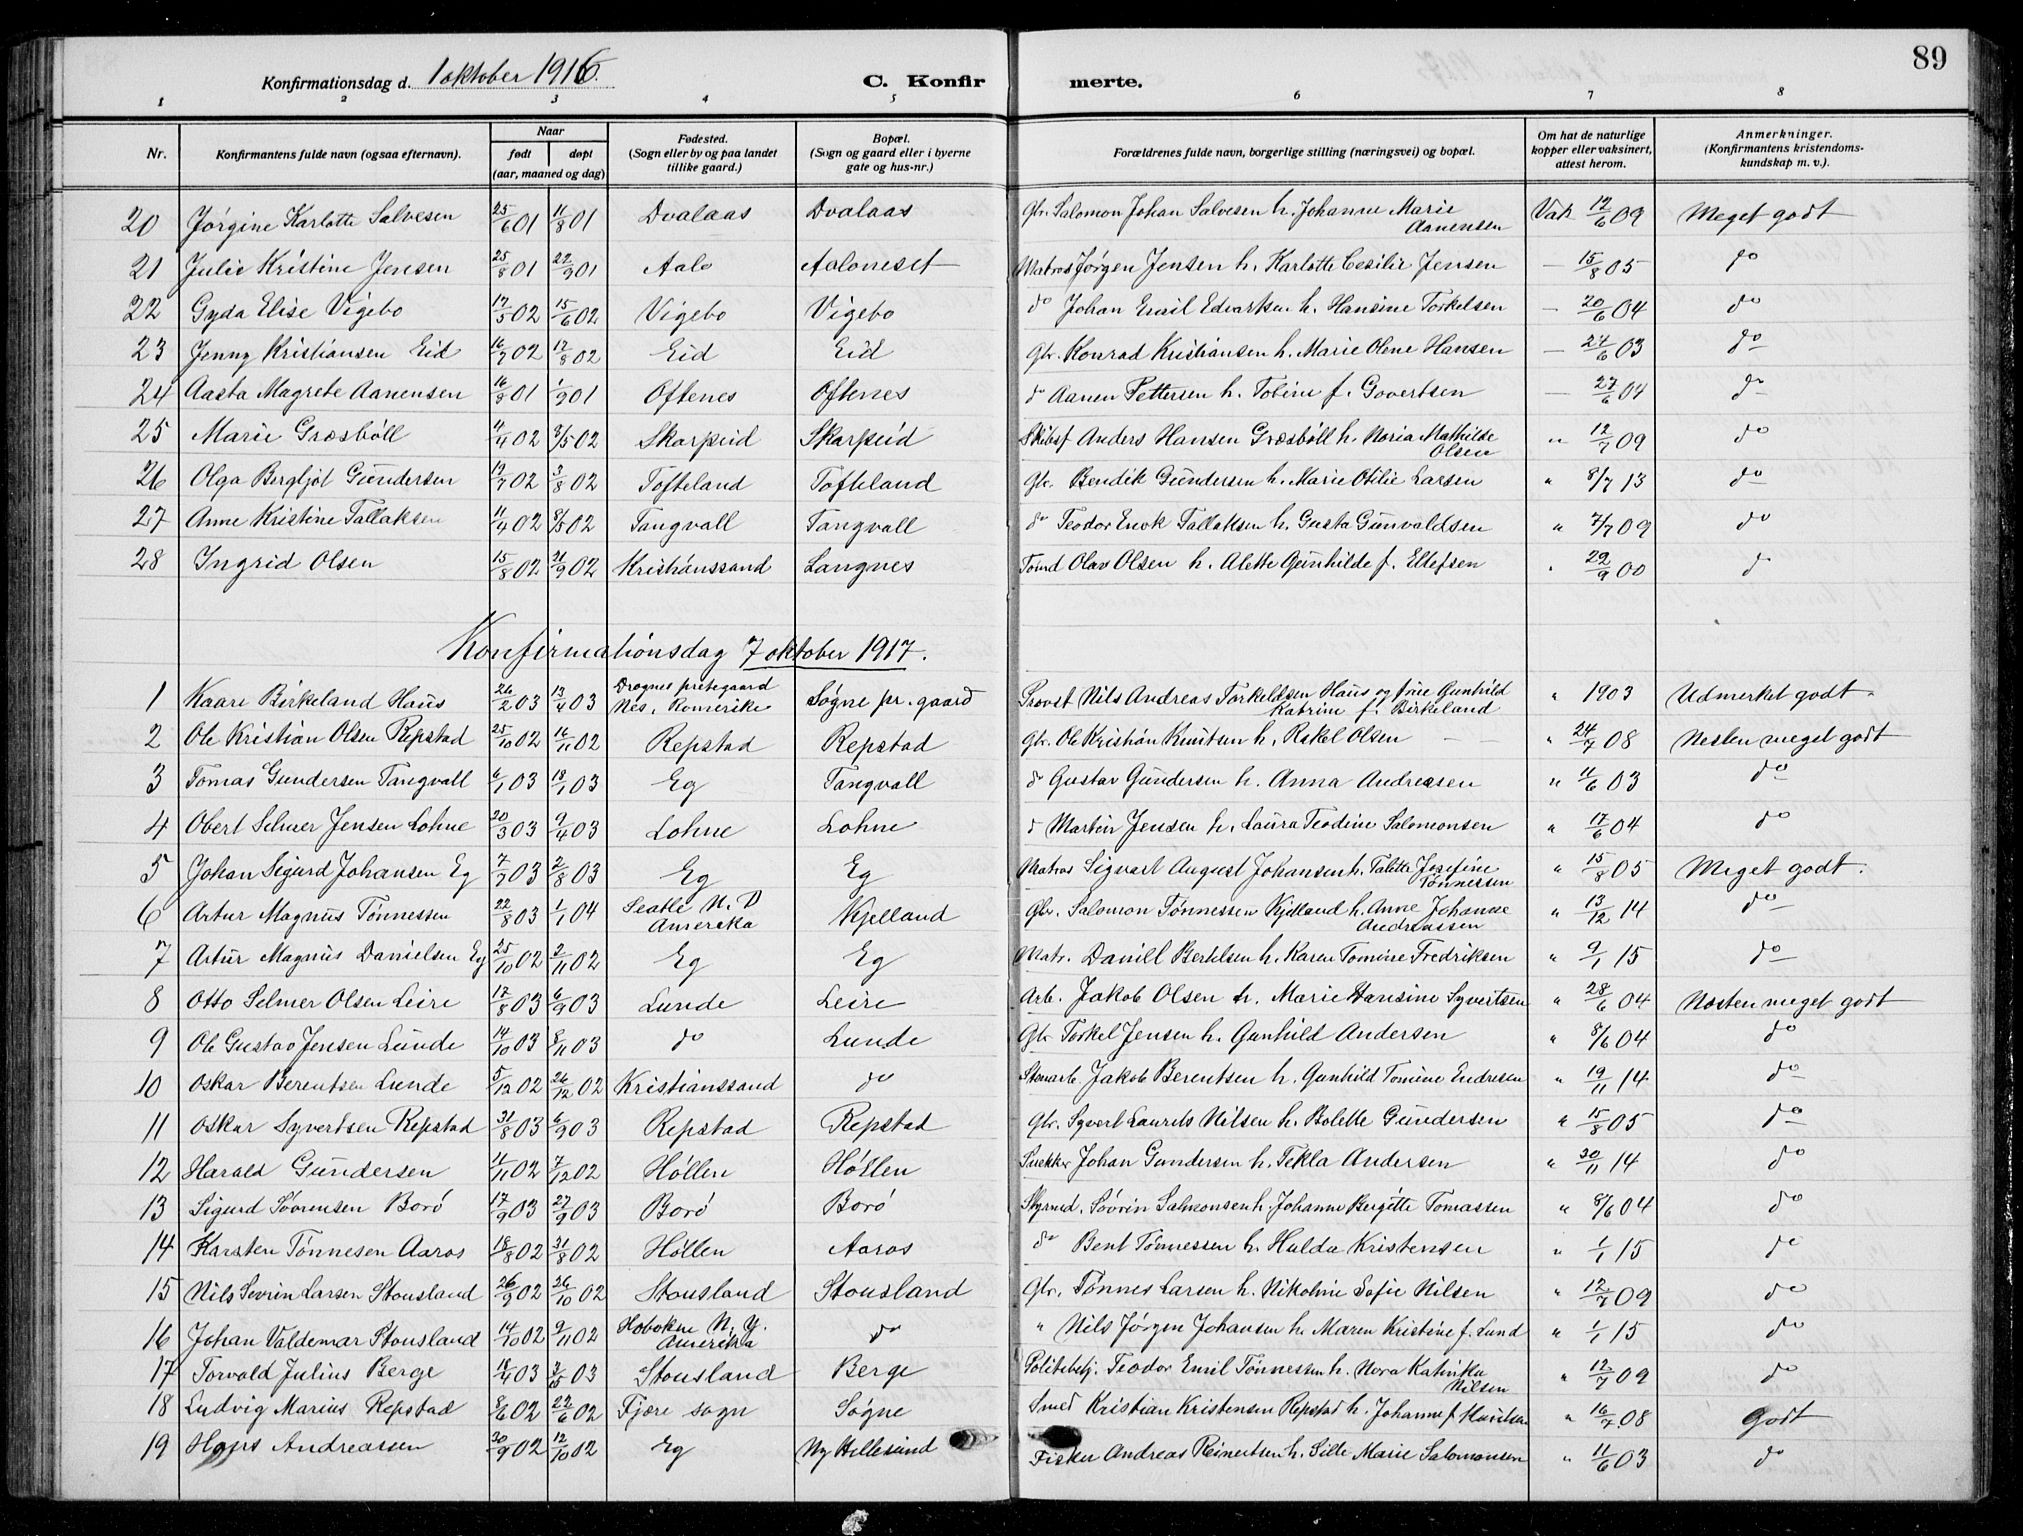 89
Konfirmationsdag d. 1 oktober 1916. C. Konfirmerte.
1 2 3 4 5 6 7 8
Nr. Konfirmantens fulde navn (ogsaa efternavn). Naar født døpt (aar, maaned og dag) Fødested. (Sogn eller by og paa landet tillike gaard.) Bopæl. (Sogn og gaard eller i byerne gate og hus-nr.) Forældrenes fulde navn, borgerlige stilling (næringsvei) og bopæl. Om hat de naturlige kopper eller vaksinert, attest herom. Anmerkninger. (Konfirmantens kristendomskundskap m. v.).
20 Jørgine Karlotte Salvesen 25/6 01 11/8 01 Dvalaas Dvalaas Gbr. Salomon Johan Salvesen h. Johanne Marie Aanensen Vak 12/6 09 Meget godt
21 Julie Kristine Jensen 25/8 01 22/9 01 Aalo Aaloneset Matros Jørgen Jensen h. Karlotte Cesilie Jensen — 15/8 05 do
22 Gyda Elise Vigebo 17/5 02 15/6 02 Vigebo Vigebo do Johan Emil Edvartsen h. Hansine Torkelsen — 20/6 04 do
23 Jenny Kristiansen Eid 16/7 02 17/8 02 Eid Eid Gbr. Konrad Kristiansen h. Marie Olene Hansen — 24/6 03 do
24 Aasta Magrete Aanensen 16/8 01 1/9 01 Oftenes Oftenes do Aanen Pettersen h. Tobine f. Govertsen — 27/6 04 do
25 Marie Græsbøll 4/4 02 3/5 02 Skarpeid Skarpeid Skibsf Anders Hansen Græsbøll h. Noria Mathilde Olsen " 12/7 09 do
26 Olga Bergljot Gundersen 19/7 02 3/8 02 Tofteland Tofteland Gbr. Bendik Gundersen h. Marie Otilie Larsen " 8/7 13 do
27 Anne Kristine Tallaksen 11/4 02 8/5 02 Tangvall Tangvall do Teodor Enok Tallaksen h. Gusta Gunvaldsen " 7/7 09 do
28 Ingrid Olsen 15/8 02 21/9 02 Kristianssand Langnes Tømd Olav Olsen h. Alette Gunhilde f. Ellefsen " 22/9 00 do
Konfirmationsdag 7 oktober 1917.
1 Kaare Birkeland Haus 26/2 03 13/4 03 Drognes prestegaard Nes, Romerike Søgne pr. gaard Provst Nils Andreas Torkeldsen Haus og frue Gunhild Katrine f. Birkeland " 1903 Udmerket godt.
2 Ole Kristian Olsen Repstad 25/10 02 16/11 02 Repstad Repstad Gbr. Ole Kristian Knutsen h. Rakel Olsen " 24/7 08 Nesten meget godt
3 Tomas Gundersen Tangvall 6/1 03 18/1 03 Eg Tangvall do Gustav Gundersen h. Anna Andreasen " 11/6 03 do
4 Obert Selmer Jensen Lohne 20/3 03 9/4 03 Lohne Lohne d Martin Jensen h. Laura Teodine Salomonsen " 17/6 04 do
5 Johan Sigurd Johansen Eg 7/7 03 2/8 03 Eg Eg Matros Sigvart August Johansen h. Talette Josefine Tønnessen " 15/8 05 Meget godt.
6 Artur Magnus Tønnessen 22/8 03 1/1 04 Seatle N. D Amerika Kjelland Gbr. Salomon Tønnessen Kjelland h. Anne Johanne Andreassen " 13/12 14 do
7 Artur Magnus Danielsen Eg 25/10 02 2/11 02 Eg Eg Matr. Daniel Bertelsen h. Karen Tomine Fredriksen " 9/1 15 do
8 Otto Selmer Olsen Leire 17/8 03 6/9 03 Lunde Leire Arb. Jakob Olsen h. Marie Hansine Syvertsen " 28/6 04 Nesten meget godt
9 Ole Gustav Jensen Lunde 14/10 03 8/11 03 do Lunde Gbr Torkel Jensen h. Gunhild Andersen " 8/6 04 do
10 Oskar Berentsen Lunde 5/12 02 26/12 02 Kristianssand do Stenarb. Jakob Berentsen h. Gunhild Tomine Endresen " 19/11 14 do
11 Oskar Syvertsen Repstad 31/8 03 6/9 03 Repstad Repstad Gbr. Syvert Laurits Nilsen h. Bolette Gundersen " 15/8 05 do
12 Harald Gundersen 11/11 02 7/12 02 Høllen Høllen Snekker Johan Gundersen h. Tekla Andersen " 30/11 14 do
13 Sigurd Sövrensen Borö 17/9 03 27/9 03 Borö Borö Styrmd. Sövrin Salmonsen h. Johanne Bergitte Tomassen " 8/6 04 do
14 Karsten Tønnesen Aaros 18/8 02 31/8 02 Høllen Aaros do Bent Tønnessen h. Hulda Kristensen " 1/1 15 do
15 Nils Sevrin Larsen Stousland 26/9 02 26/10 02 Stousland Stousland Gbr. Tønnes Larsen h. Nikoline Sofie Nilsen " 12/7 09 do
16 Johan Valdemar Stousland 14/10 02 9/11 02 Hobokne N. Y. Amerika do " Nils Jørgen Johansen h. Maren Kristine f. Lund " 1/1 15 do
17 Torvald Julius Berge 18/4 03 3/5 03 Stousland Berge Politibetj. Teodor Emil Tønnessen h. Nora Katinka Nilsen " 12/7 09 do
18 Ludvig Marius Repstad 8/6 02 22/6 02 Fjære sogn Søgne Smed Kristian Kristensen Repstad h. Johanne f. " 16/7 08 Godt
19 Hans Andreassen 30/9 02 12/10 02 Eg Ny Hellesund Fisker Andreas Reinertsen h. Sille Marie Salomonsen " 11/6 03 do